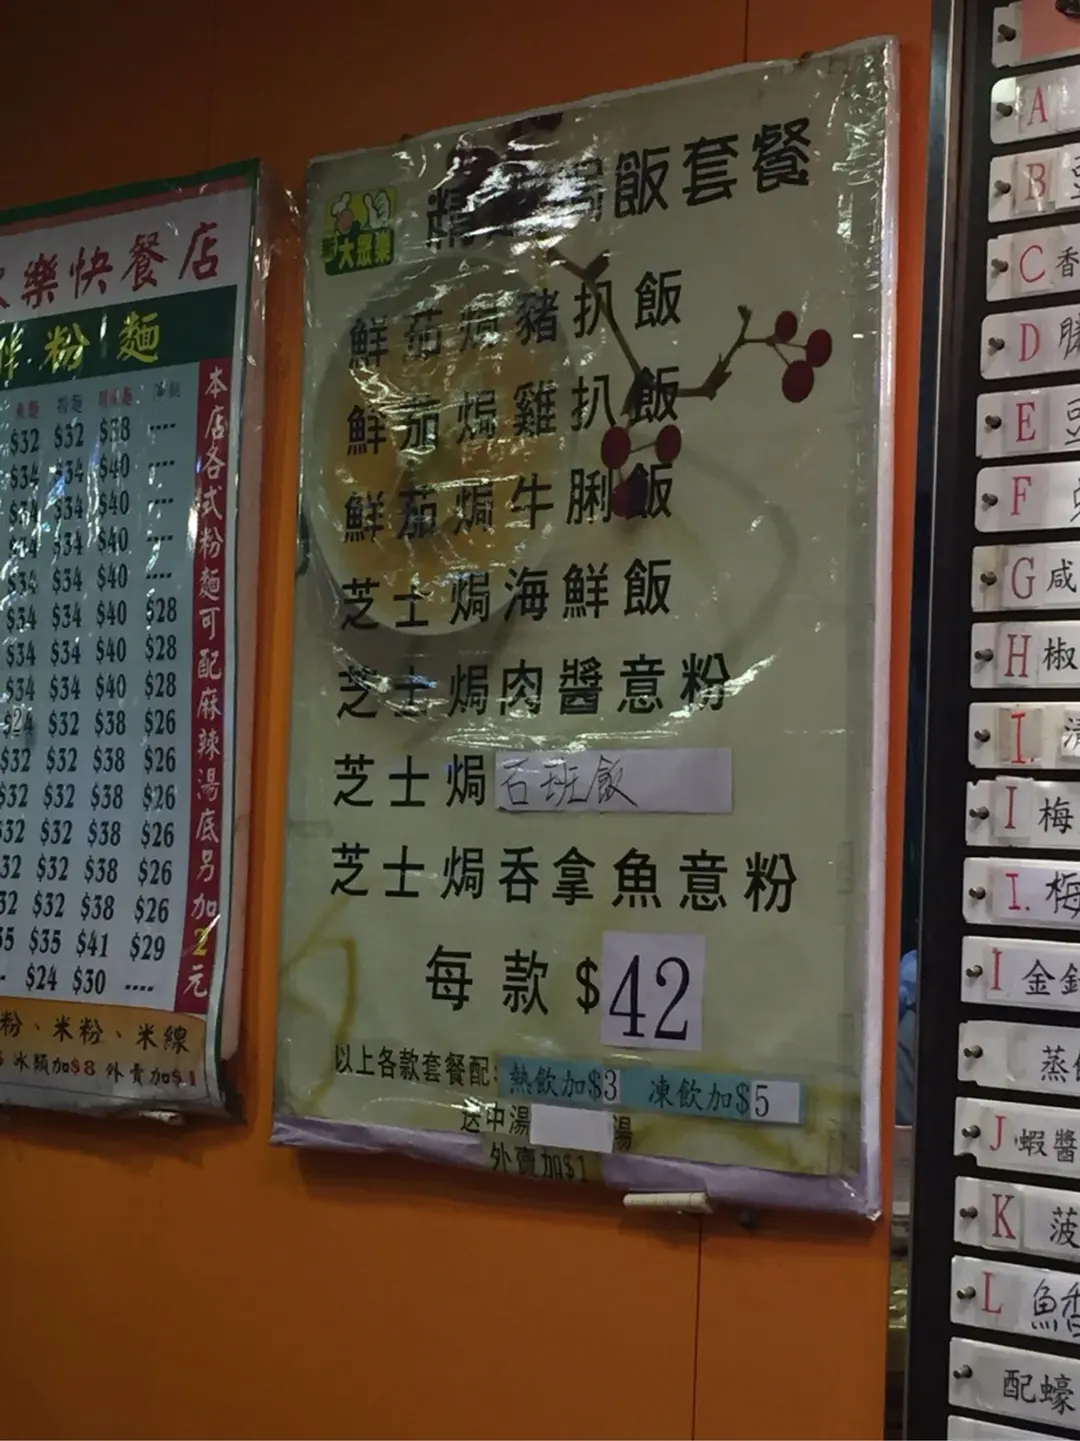 樂快餐店
粉麵
$32 $32 $38 ----
$34 $34 $40 ----
$34 $34 $40 ----
$34 $34 $40 ----
$34 $34 $40 ----
$34 $34 $40 $28
$34 $34 $40 $28
$34 $34 $40 $28
$24 $32 $38 $26
$32 $32 $38 $26
$32 $32 $38 $26
$32 $32 $38 $26
32 $32 $38 $26
32 $32 $38 $26
35 $35 $41 $29
- $24 $30 ----
本店各式粉麵可配麻辣湯底另加2元
粉、米粉、米線
冰類加$8 外賣加$1
大眾樂
精 焗飯套餐
鮮茄焗豬扒飯
鮮茄焗雞扒飯
鮮茄焗牛脷飯
芝士焗海鮮飯
芝士焗肉醬意粉
芝士焗石班飯
芝士焗吞拿魚意粉
每款$42
以上各款套餐配:熱飲加$3 凍飲加$5
送中湯 湯
外賣加$1
A
B
C 香
D
E
F
G 咸
H 椒
I. 清
I 梅
I. 梅
I 金針
蒸
J 蝦醬
K 菠
L
配蠔